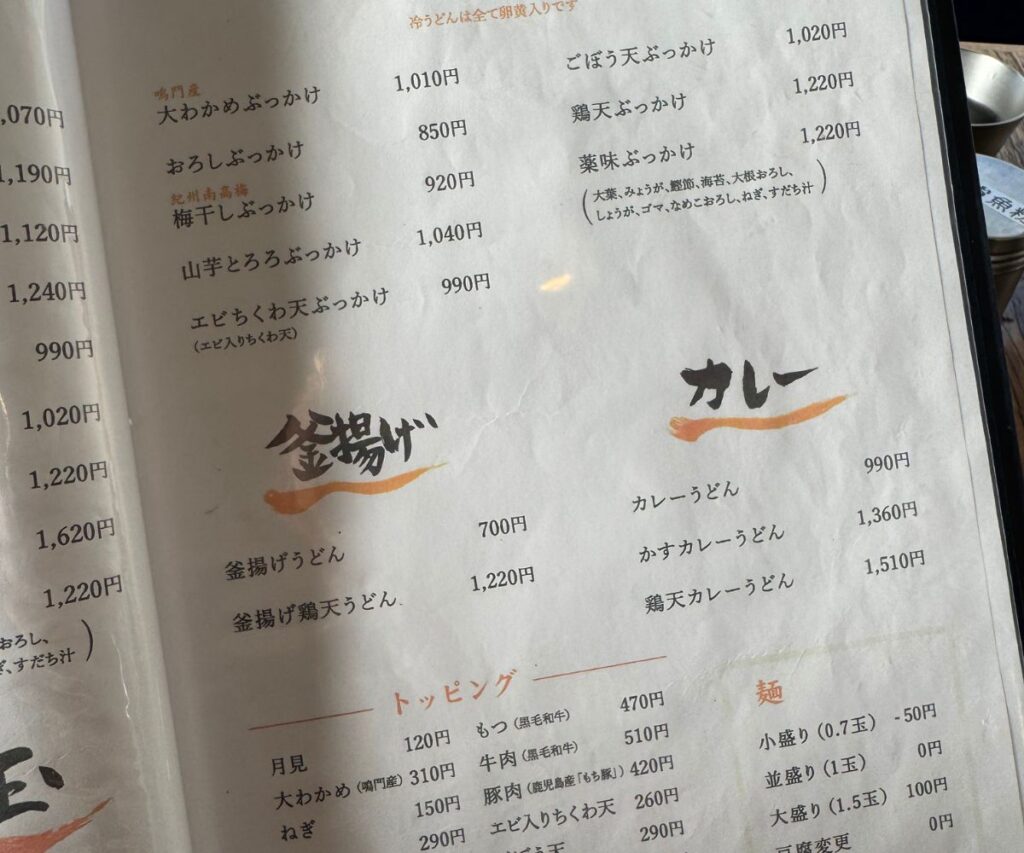 ,070円
1,190円
1,120円
1,240円
990円
1,020円
1,220円
1,620円
1,220円
おろし、
ぎ、すだち汁)
玉
冷うどんは全て卵黄入りです
鳴門産
大わかめぶっかけ 1,010円
おろしぶっかけ 850円
紀州南高梅
梅干しぶっかけ 920円
山芋とろろぶっかけ 1,040円
エビちくわ天ぶっかけ 990円
(エビ入りちくわ天)
ごぼう天ぶっかけ 1,020円
鶏天ぶっかけ 1,220円
薬味ぶっかけ 1,220円
(大葉、みょうが、鰹節、海苔、大根おろし、
しょうが、ゴマ、なめこおろし、ねぎ、すだち汁)
釜揚げ
釜揚げうどん 700円
釜揚げ鶏天うどん 1,220円
カレー
カレーうどん 990円
かすカレーうどん 1,360円
鶏天カレーうどん 1,510円
トッピング
月見 120円
大わかめ(鳴門産) 310円
ねぎ 150円
290円
もつ(黒毛和牛) 470円
牛肉(黒毛和牛) 510円
豚肉(鹿児島産「もち豚」) 420円
エビ入りちくわ天 260円
ごぼう天 290円
麺
小盛り(0.7玉) -50円
並盛り(1玉) 0円
大盛り(1.5玉) 100円
豆腐変更 0円
魚粉